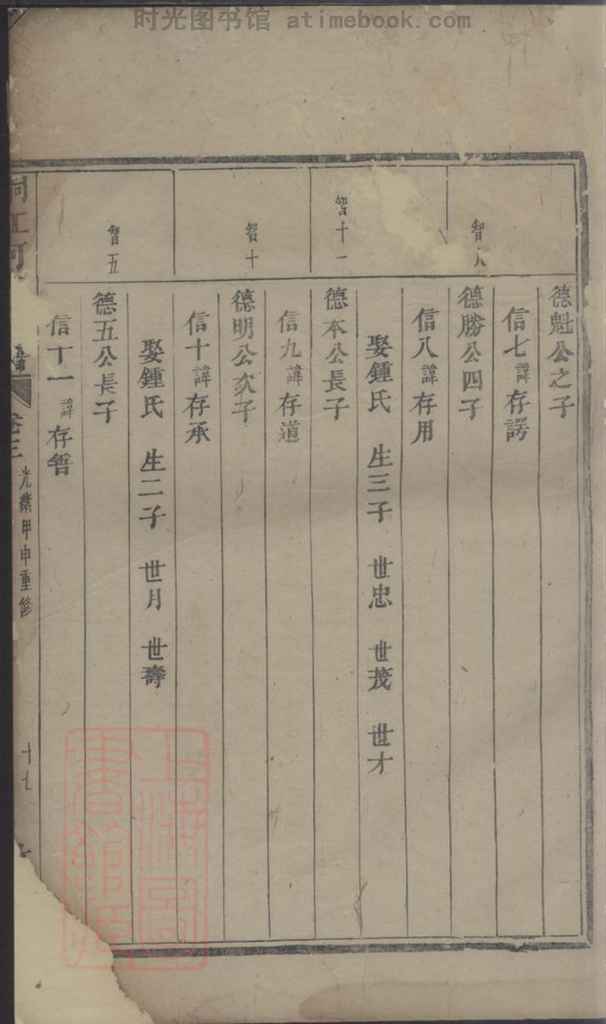 时光图书馆 atimebook.com
德魁公之子
信七諱存諤
智八
德勝公四子
信八諱存用
娶鍾氏 生三子 世忠 世茂 世才
智十一
德本公長子
信九諱存道
智十
德明公次子
信十諱存承
娶鍾氏 生二子 世月 世壽
智五
德五公長子
信十一諱存
譜
卷三
光緒甲申重修
十七
上海圖書館藏